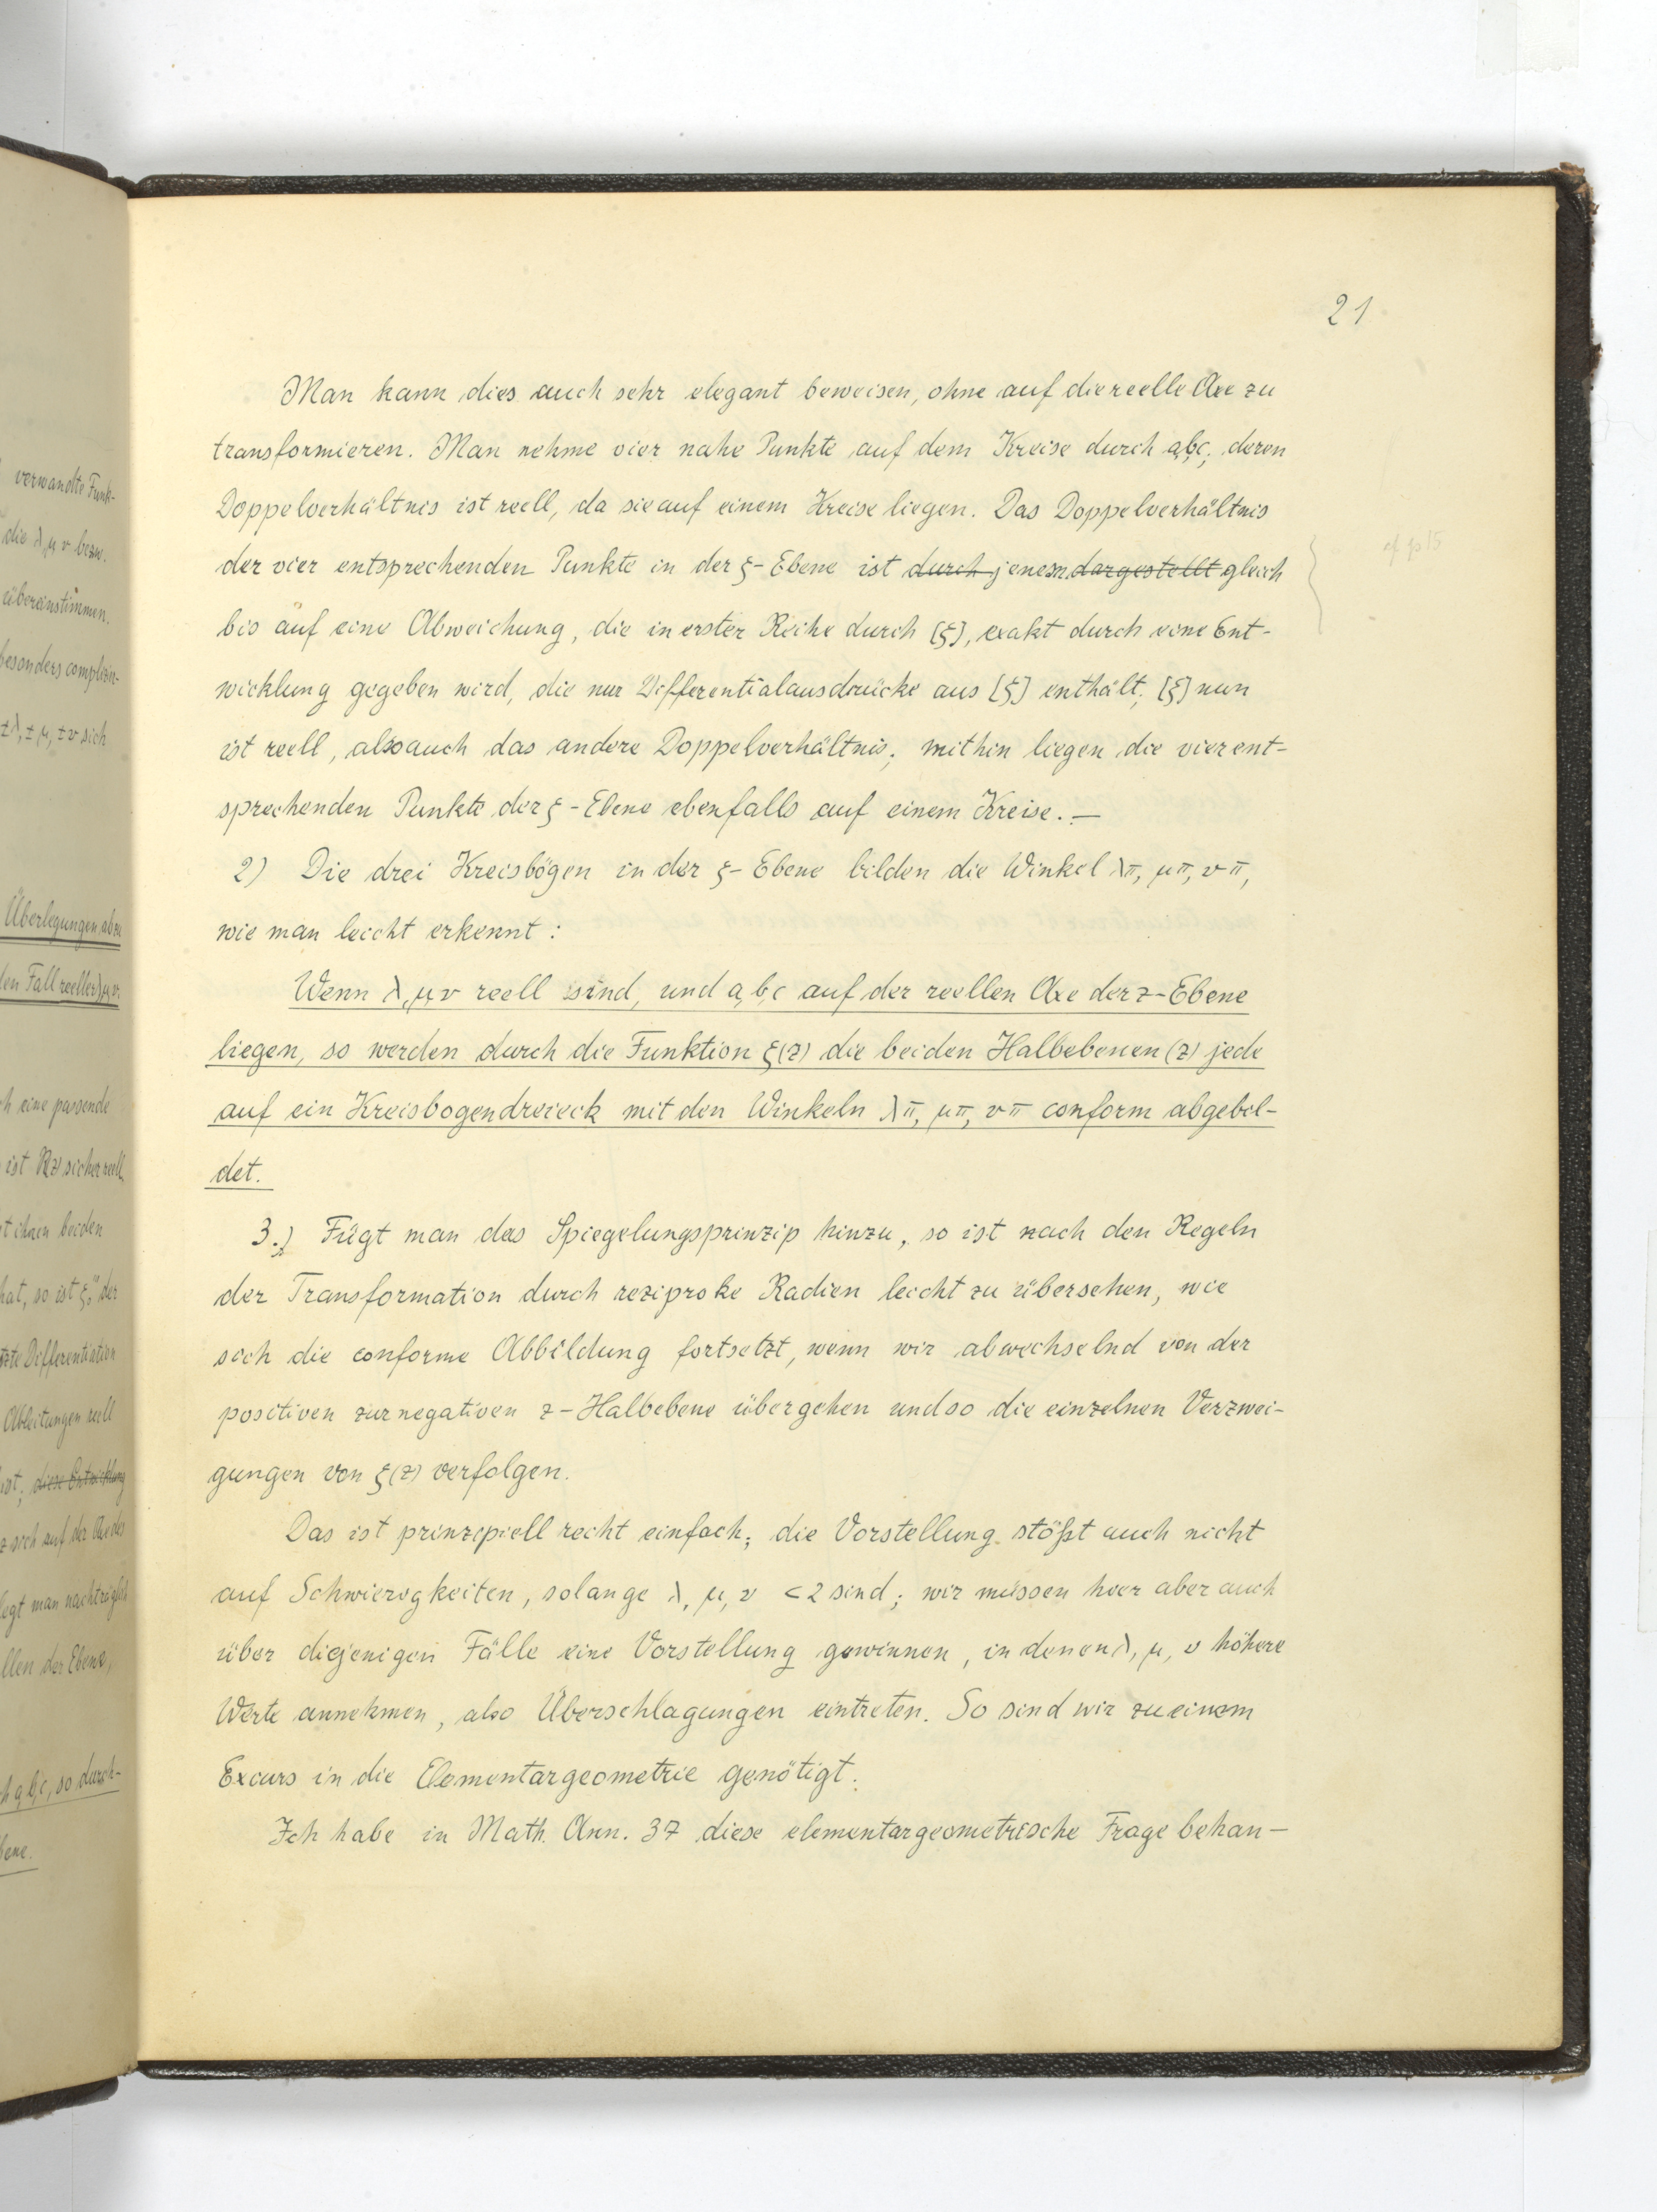 21
Man kann dies auch sehr elegant beweisen, ohne auf die reelle Axe zu
transformieren. Man nehme vier nahe Punkte auf dem Kreise durch a,b,c; deren
Doppelverhältnis ist reell, da sie auf einem Kreise liegen. Das Doppelverhältnis
der vier entsprechenden Punkte in der ξ-Ebene ist durch jenem dargestellt gleich
cf p 15
bis auf eine Abweichung, die in erster Reihe durch [ξ], exakt durch eine Ent-
wicklung gegeben wird, die nur Differentialausdrücke aus [ξ] enthält; [ξ] nun
ist reell, also auch das andere Doppelverhältnis; mithin liegen die vier ent-
sprechenden Punkte der ξ-Ebene ebenfalls auf einem Kreise. —
2) Die drei Kreisbögen in der ξ-Ebene bilden die Winkel λπ, μπ, νπ,
wie man leicht erkennt:
Wenn λ, μ, ν reell sind, und a, b, c auf der reellen Axe der z-Ebene
liegen, so werden durch die Funktion ξ(z) die beiden Halbebenen (z) jede
auf ein Kreisbogendreieck mit den Winkeln λπ, μπ, νπ conform abgebil-
det.
3.) Fügt man das Spiegelungsprinzip hinzu, so ist nach den Regeln
der Transformation durch reziproke Radien leicht zu übersehen, wie
sich die conforme Abbildung fortsetzt, wenn wir abwechselnd von der
positiven zur negativen z-Halbebene übergehen und so die einzelnen Verzwei-
gungen von ξ(z) verfolgen.
Das ist prinzipiell recht einfach; die Vorstellung stößt auch nicht
auf Schwierigkeiten, solange λ, μ, ν < 2 sind; wir müssen hier aber auch
über diejenigen Fälle eine Vorstellung gewinnen, in denen λ, μ, ν höhere
Werte annehmen, also Überschlagungen eintreten. So sind wir zu einem
Excurs in die Elementargeometrie genötigt.
Ich habe in Math. Ann. 37 diese elementargeometrische Frage behan-
verwandte Funk-
die λ, μ, ν bezw.
übereinstimmen.
besonders
± λ, ± μ, ± ν sich
Überlegungen
Fall reeller λ, μ, ν.
eine passende
ist sicher reell
ihnen beiden
hat, so ist der
Differentiation
Ableitungen reell
ist; diese Entwicklung
sich auf der Axe des
legt man nachträglich
der Ebene,
a, b, c, so durch-